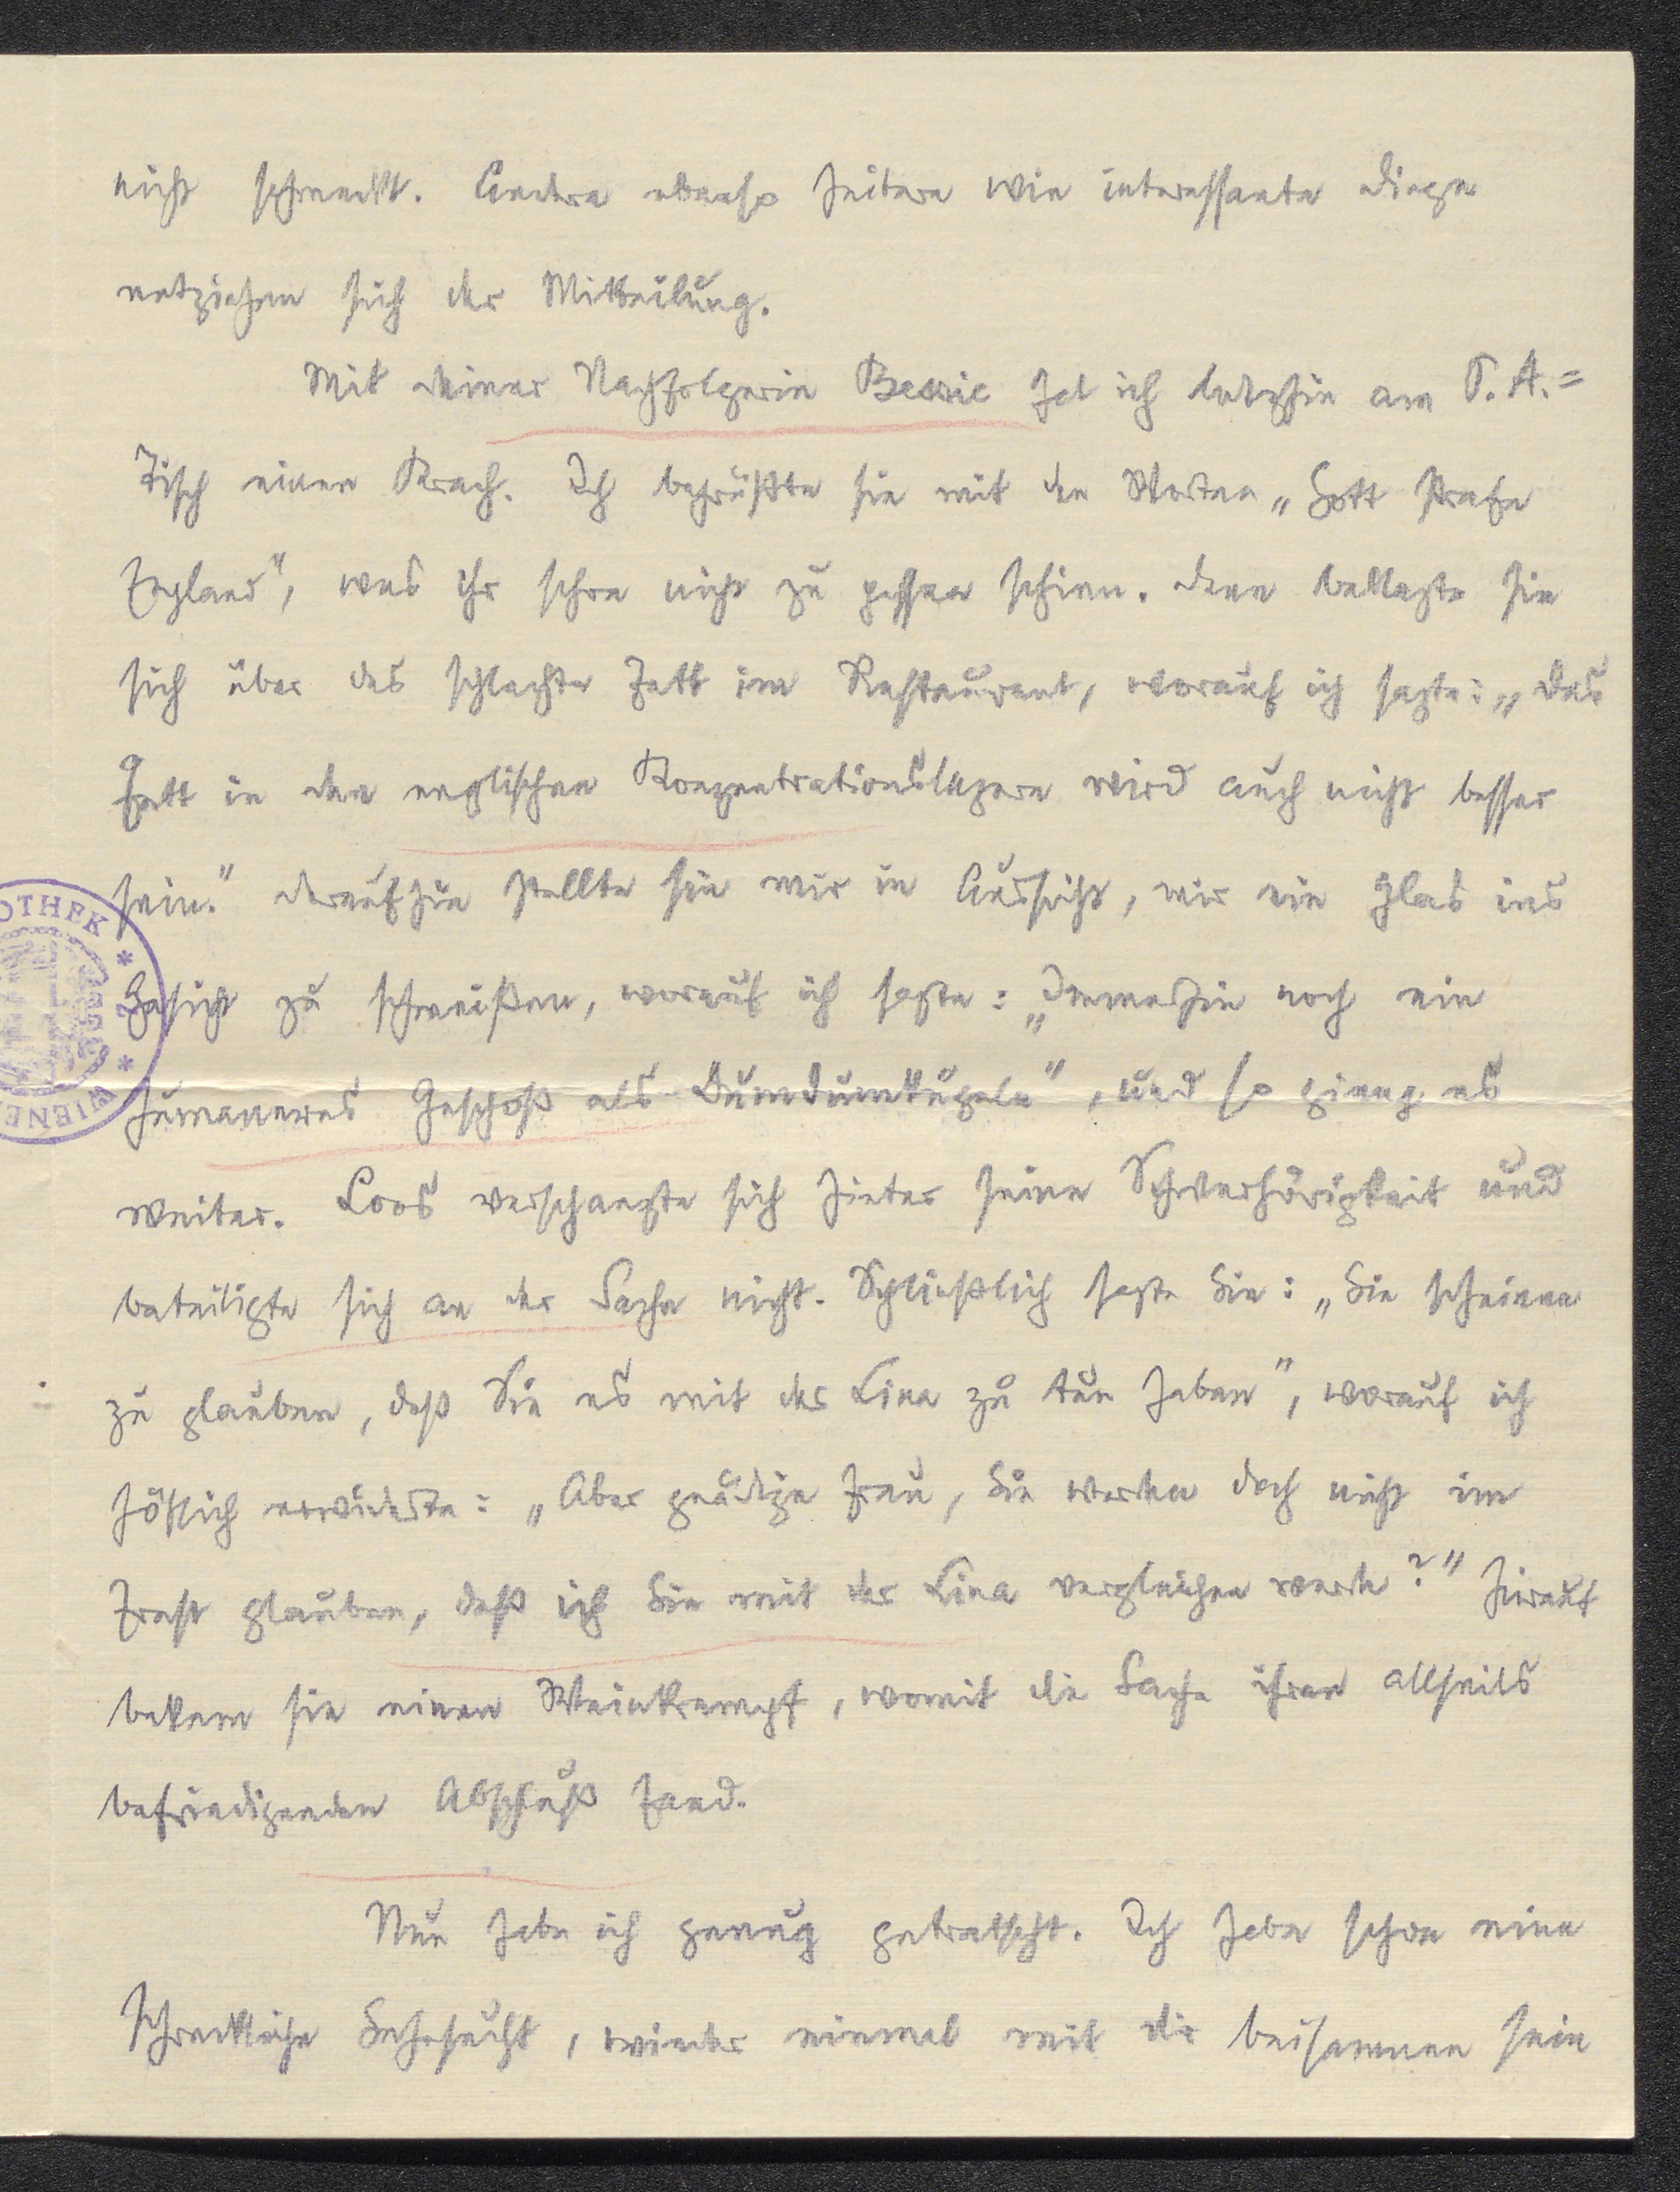 nicht schmeckt. Andere ebenso heitere wie interessante Dinge
entziehen sich der Mitteilung.
Mit deiner Nachfolgerin Bessie hat ich letzthin am P. A.=
Tisch einen Krach. Ich begrüßte sie mit den Worten „Gott strafe
England", was ihr schon nicht zu passen schien. Dann beklagte sie
sich über das schlechte Fett im Restaurant, worauf ich sagte: „Das
Fett in den englischen Konzentrationslagern wird auch nicht besser
sein." Daraufhin stellte sie mir in Aussicht, mir ein Glas ins
Gesicht zu schmeißen, worauf ich sagte: „Immerhin noch ein
humaneres Geschoß als Dumdumkugeln", und so gieng es
weiter. Loos verschanzte sich hinter seine Schwerhörigkeit und
beteiligte sich an der Sache nicht. Schließlich sagte sie: „Sie scheinen
zu glauben, daß Sie es mit der Lina zu tun haben", worauf ich
höflich erwiderte: „Aber gnädige Frau, Sie werden doch nicht im
Ernst glauben, daß ich Sie mit der Lina vergleichen werde?" Hierauf
bekam sie einen Weinkrampf, womit die Sache ihren allseits
befriedigenden Abschluß fand.
Nun habe ich genug getratscht. Ich habe schon eine
schreckliche Sehnsucht, wieder einmal mit dir beisammen sein
OTHEK * * WIENE